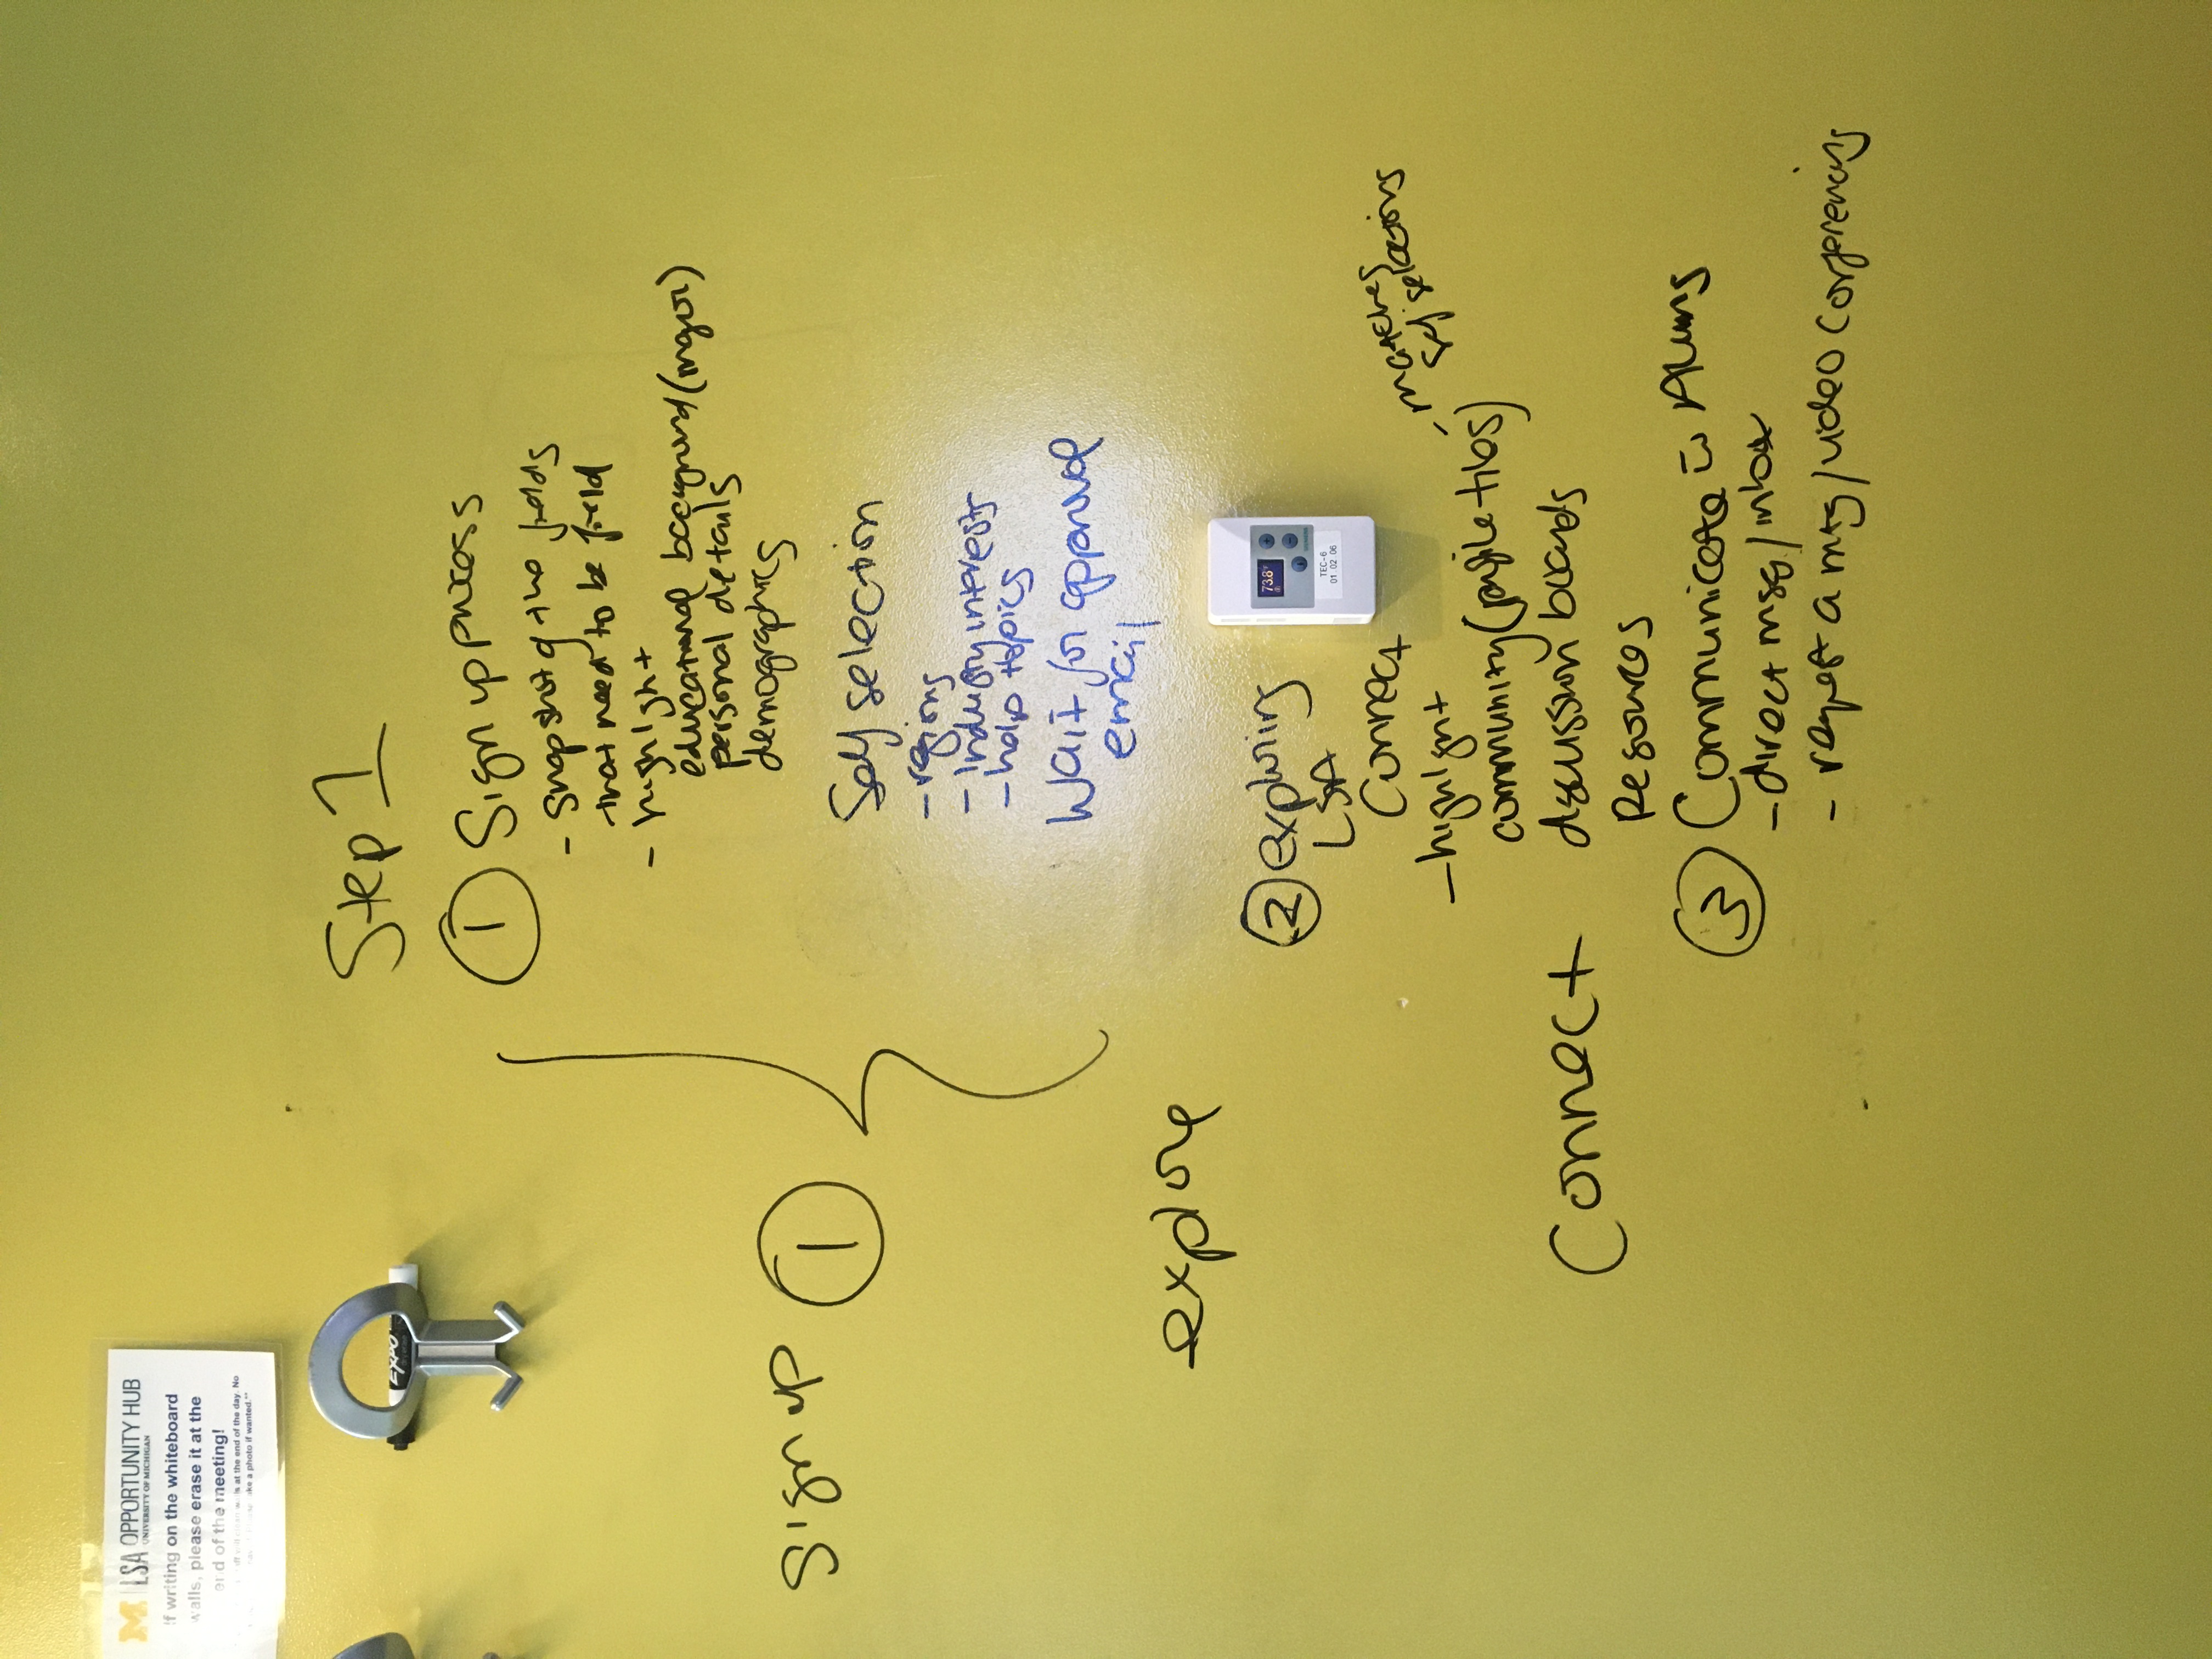 M | LSA OPPORTUNITY HUB
UNIVERSITY OF MICHIGAN
If writing on the whiteboard
walls, please erase it at the
end of the meeting!
at the end of the day. No
take a photo if wanted.**
EXPO
Step 1
① Sign up process
- Snapshot of the fields
that need to be field
- highlight
educational background (major)
personal details
demographics
Sign up ①
Self selection
- regions
- Industry interests
- help topics
Wait for approval
email
explore
② exploring
LSA
Connect
73.8°
TEC-6
01 02 06
- highlight
- matches
self selections
community (profile tiles)
Connect
discussion boards
Resources
③ Communicate w Alums
- direct msg/inbox
- request a mtg/video conferencing